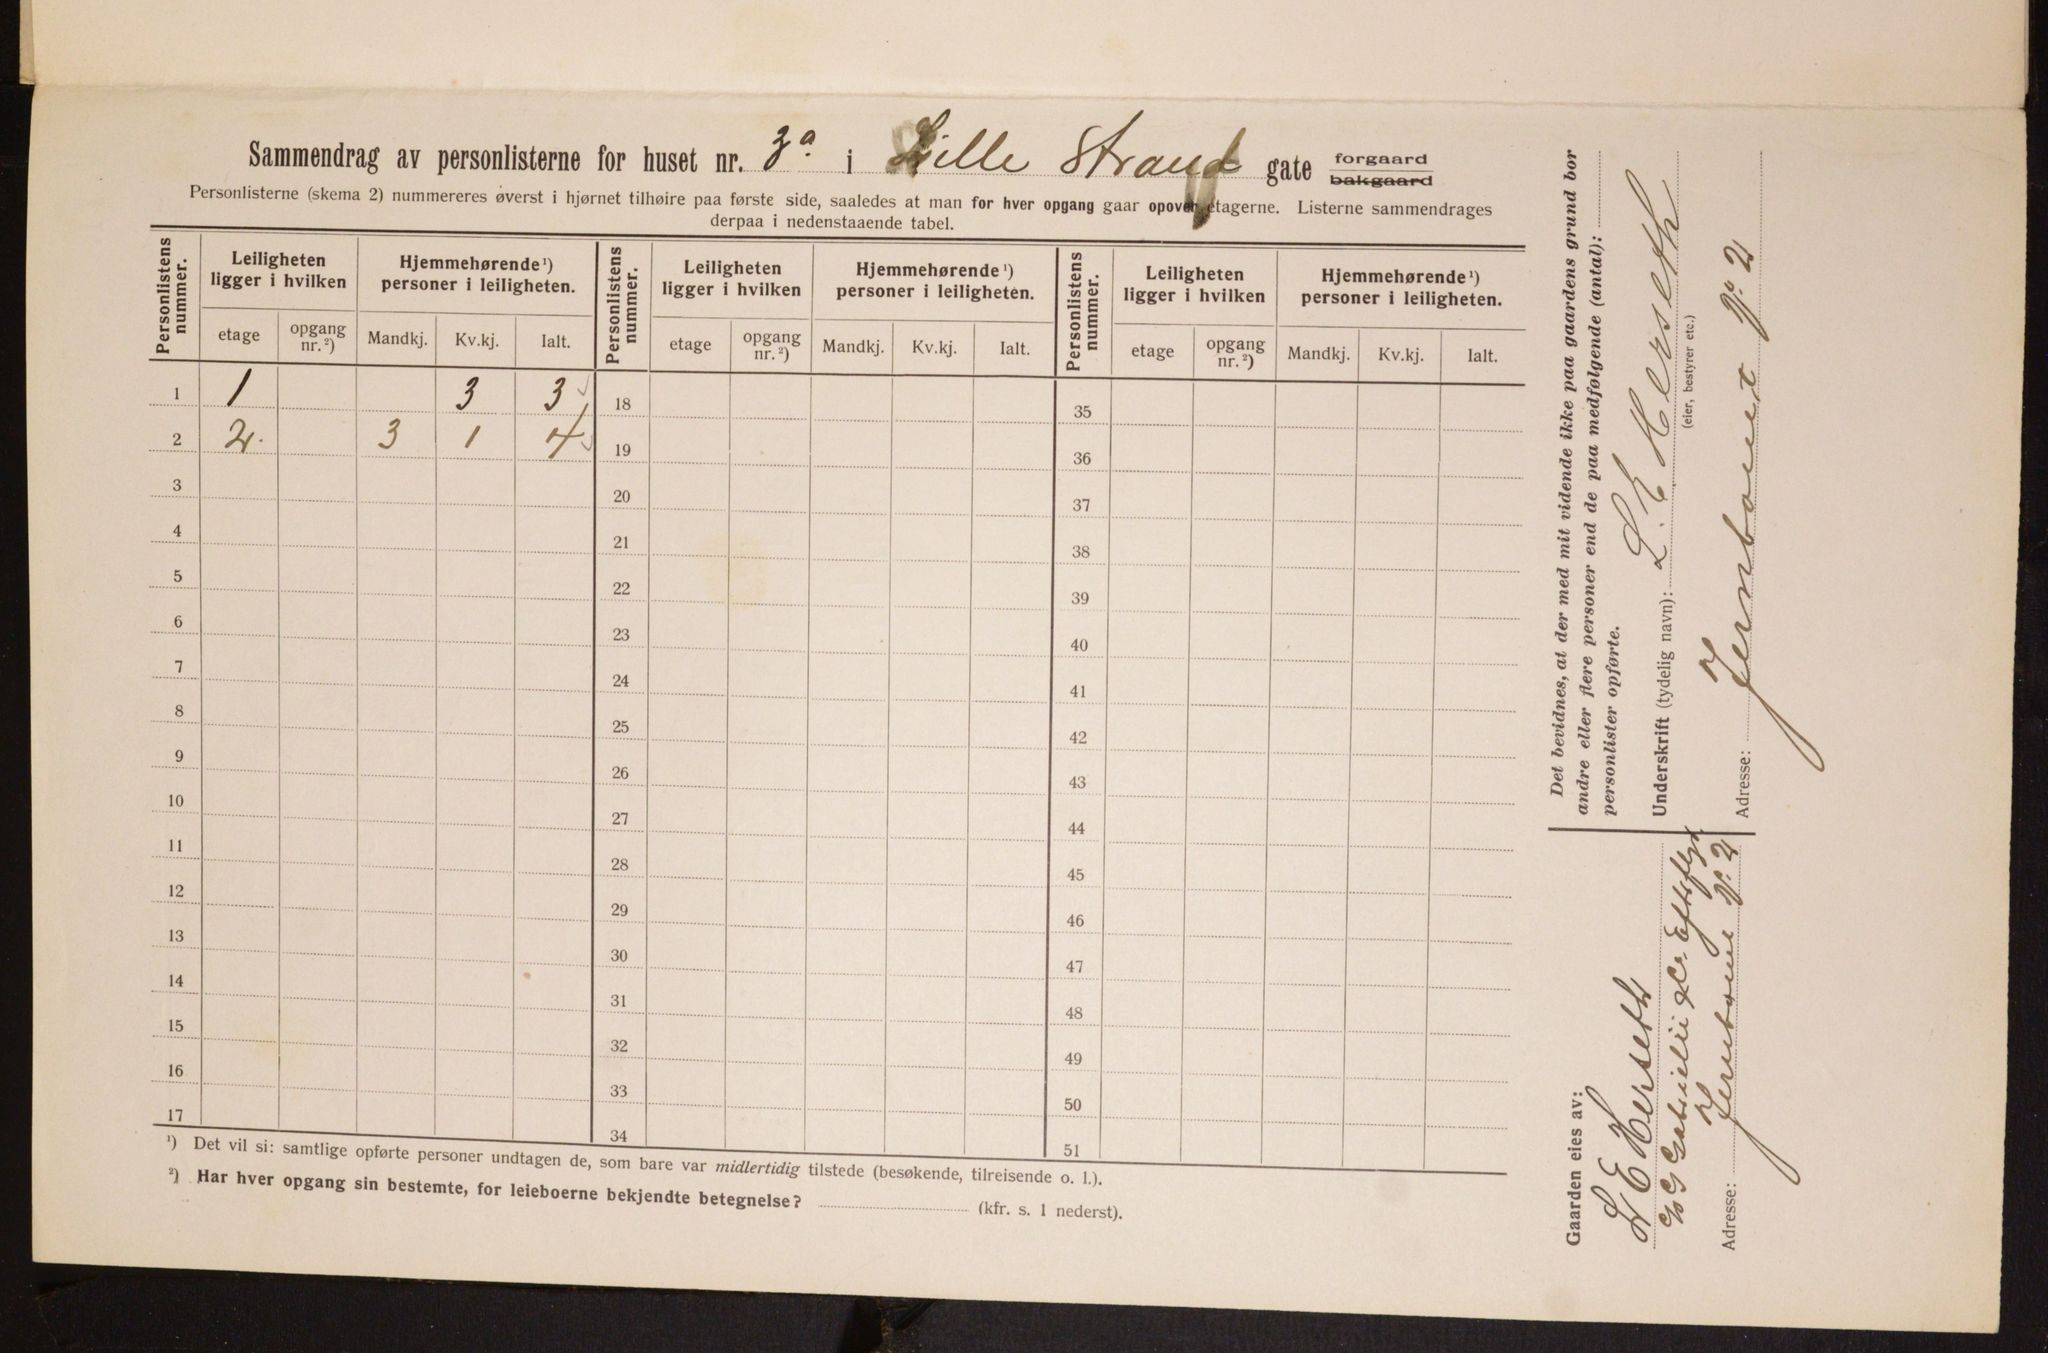 Sammendrag av personlisterne for huset nr. 3a. i Lille Strand gate forgaard bakgaard
Personlisterne (skema 2) nummereres øverst i hjørnet tilhøire paa første side, saaledes at man for hver opgang gaar opover etagerne. Listerne sammendrages
derpaa i nedenstaaende tabel.
Personlistens nummer. Leiligheten ligger i hvilken Hjemmehørende ¹) personer i leiligheten. Personlistens nummer. Leiligheten ligger i hvilken Hjemmehørende ¹) personer i leiligheten. Personlistens nummer. Leiligheten ligger i hvilken Hjemmehørende ¹) personer i leiligheten.
etage opgang nr. ²) Mandkj. Kv.kj. Ialt. etage opgang nr. ²) Mandkj. Kv.kj. Ialt. etage opgang nr. ²) Mandkj. Kv.kj. Ialt.
1 1 3 3 18 35
2 2. 3 1 4 19 36
3 20 37
4 21 38
5 22 39
6 23 40
7 24 41
8 25 42
9 26 43
10 27 44
11 28 45
12 29 46
13 30 47
14 31 48
15 32 49
16 33 50
17 34 51
¹) Det vil si: samtlige opførte personer undtagen de, som bare var midlertidig tilstede (besøkende, tilreisende o. l.).
²) Har hver opgang sin bestemte, for leieboerne bekjendte betegnelse? (kfr. s. 1 nederst).
Det bevidnes, at der med mit vidende ikke paa gaardens grund bor
andre eller flere personer end de paa medfølgende (antal):
personlister opførte.
Underskrift (tydelig navn): L. E Herseth
(eier, bestyrer etc.)
Adresse: Jernbanet No. 2
Gaarden eies av:
L E Herseth
c/o G Gabrielli & Co Efterflgr
Adresse: Jernbane No. 2